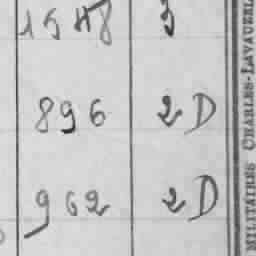 1548 3
896 2D
962 2D
MILITAIRES CHARLES-LAVAUZEL